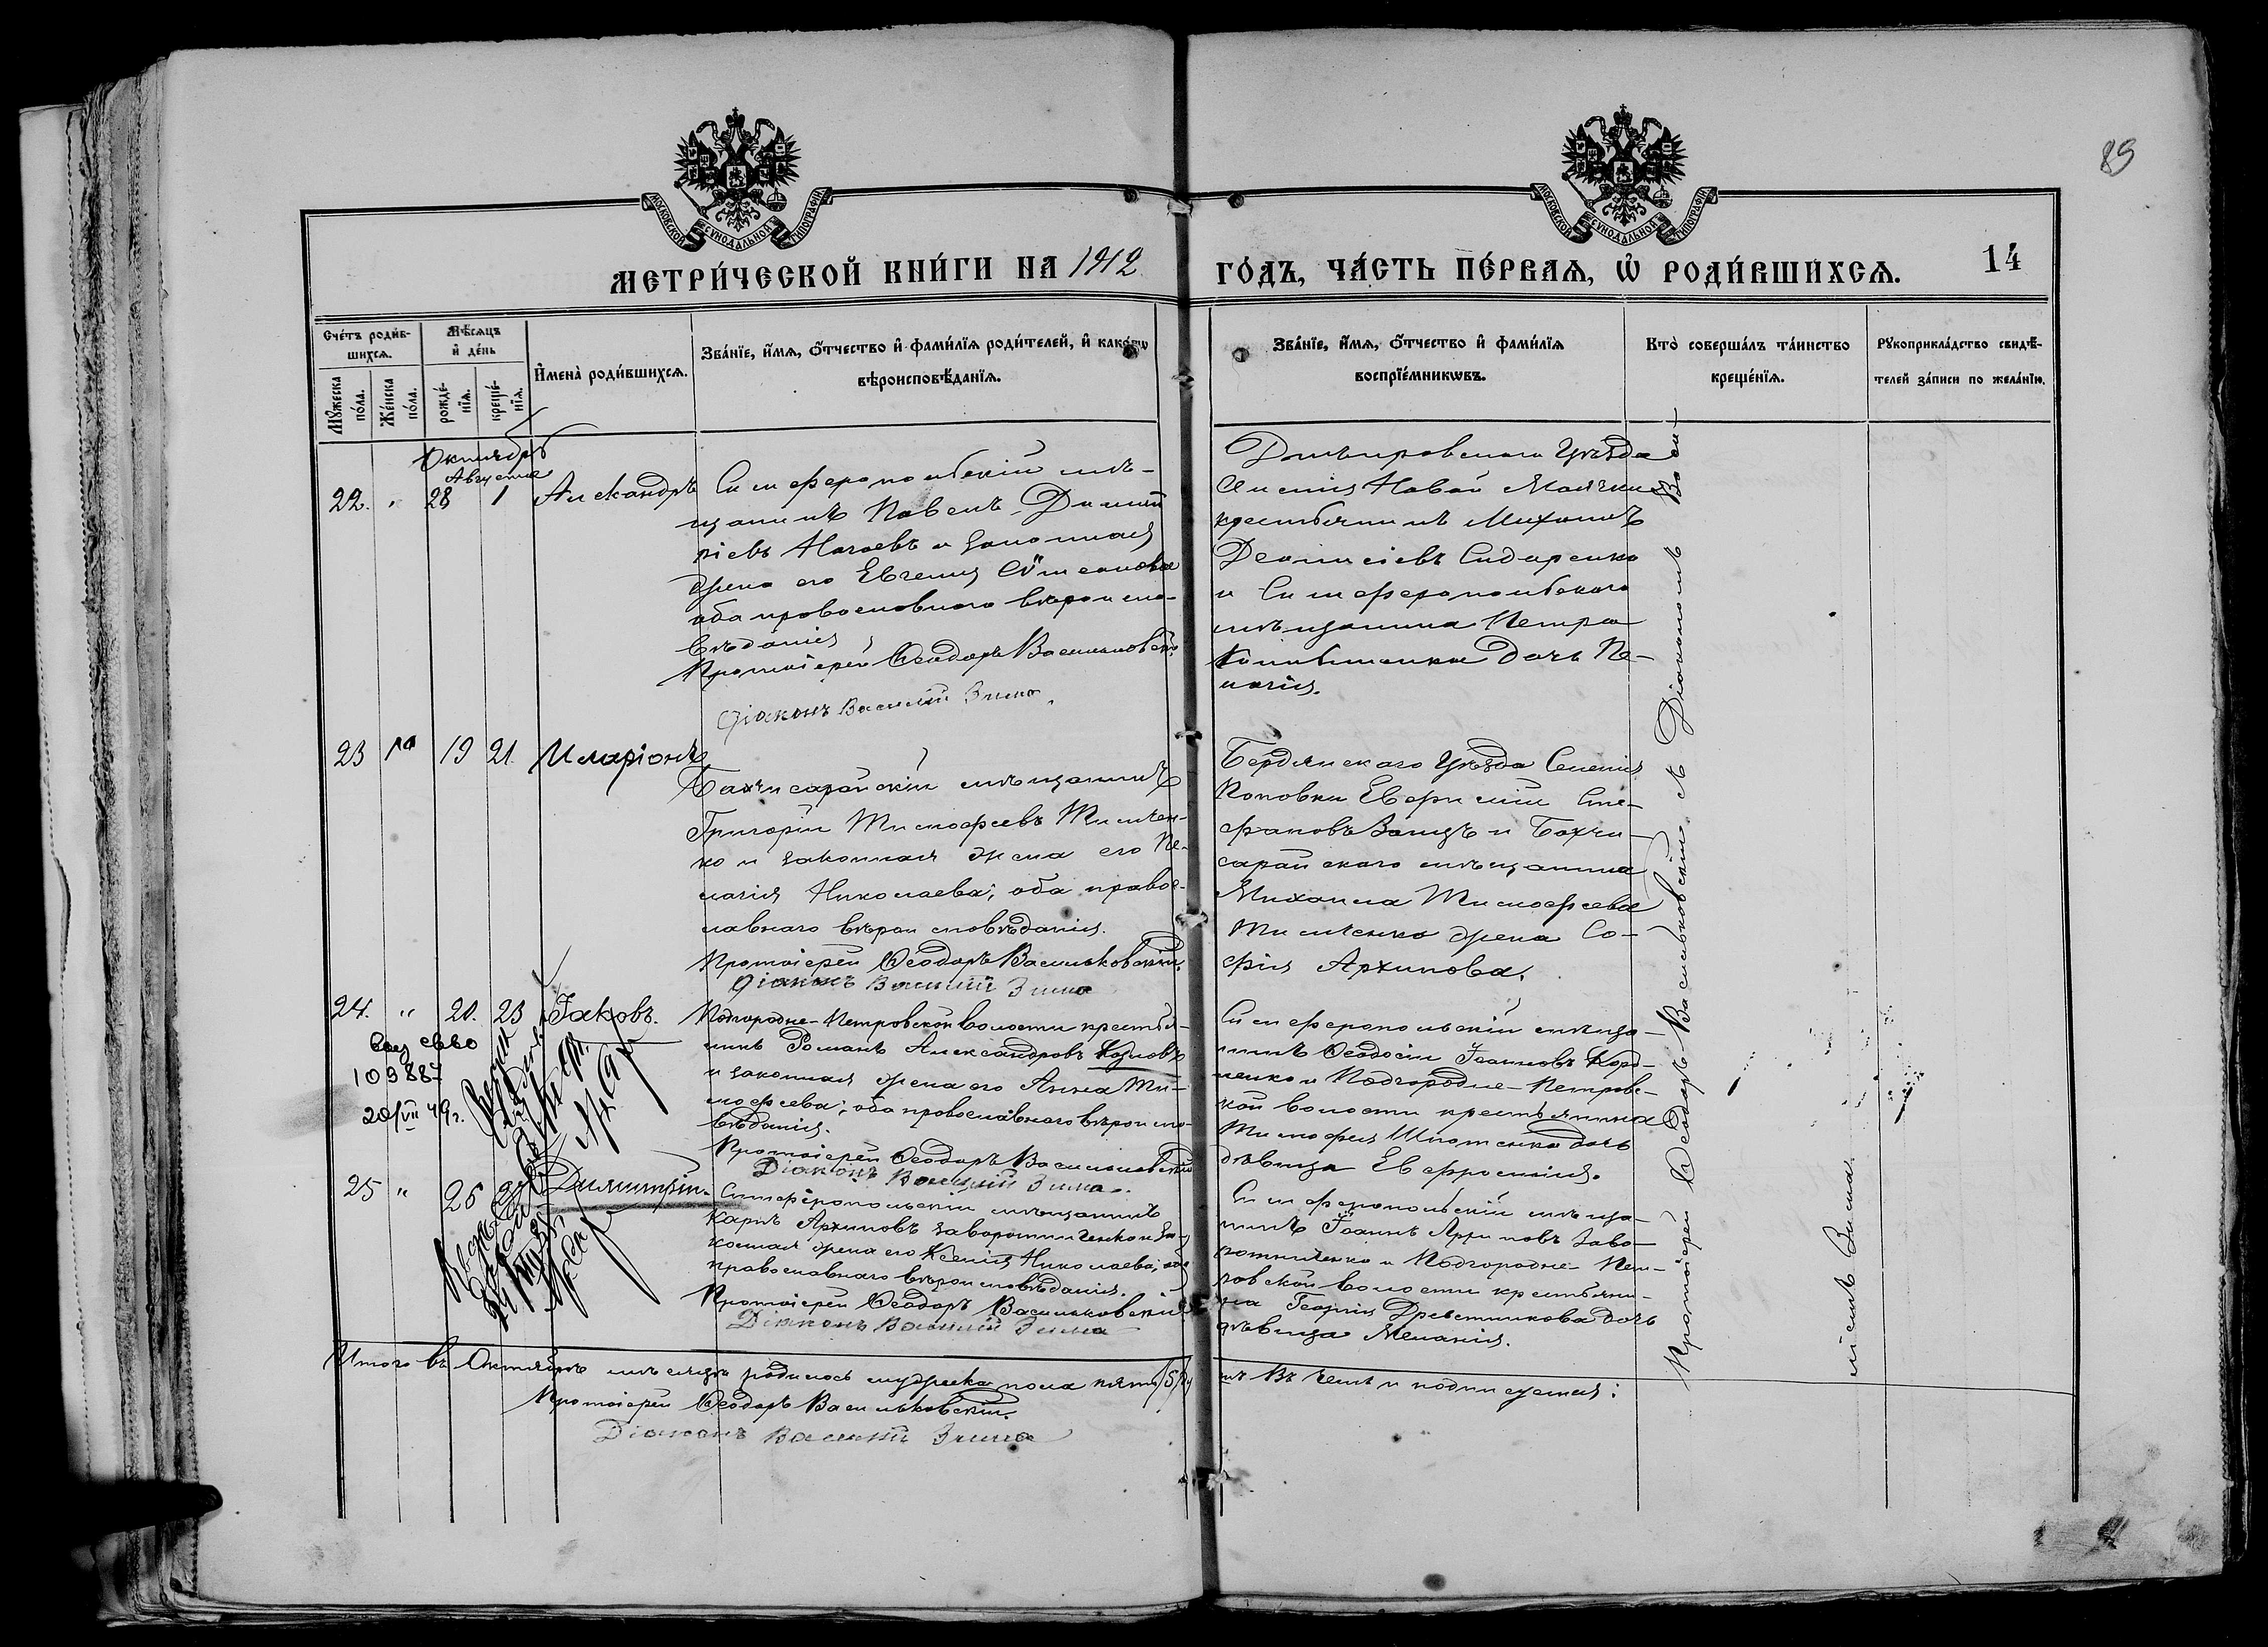 89
МОСКОВСКОЙ СУНОДАЛЬНОЙ ТИПОГРАФІИ
МОСКОВСКОЙ СУНОДАЛЬНОЙ ТИПОГРАФІИ
МЕТРИ́ЧЕСКОЙ КНИ́ГИ НА 1912
ГО́ДЪ, ЧА́СТЬ ПЕ́РВАѦ, Ѿ РОДИ́ВШИХСѦ.
14
Сче́тъ роди́в-
шихсѧ.
Мꙋ́жеска по́ла.
Же́нска по́ла.
Мѣ́сѧцъ
и҆ де́нь
рожде́-
нїѧ.
креще́-
нїѧ.
И҆мена̀ роди́вшихсѧ.
Зва́нїе, и҆́мѧ, ѻ҆́тчество и҆ фами́лїѧ роди́телей, и҆ како́гѡ
вѣроисповѣ́данїѧ.
Зва́нїе, и҆́мѧ, ѻ҆́тчество и҆ фами́лїѧ
воспрїе́мникѡвъ.
Кто̀ соверша́лъ та́инство
креще́нїѧ.
Рꙋкоприкла́дство свидѣ́-
телей за́писи по жела́нїю.
Октябрь
Августа
22. " 28 1 Александръ
Симферопольскій мѣ-
щанинъ Павелъ Димит
ріевъ Ногаевъ и законная
жена его Евгенія
оба православнаго вѣроиспо-
вѣданія
Протоіерей Ѳеодоръ Васильковскій
Діаконъ Василій Зима
Днѣпровскаго Уѣзда
Селенія Новой Маячки
крестьянинъ Михаилъ
Деонисіевъ Сидоренко
и Симферопольскаго
мѣщанина Петра
дочь Пе-
лагія.
23 " 19 21. Иларіонъ
Бахчисарайскій мѣщанинъ
Григорій Тимофеевъ Тимчен-
ко и законная жена его Пе-
лагія Николаева; оба правос-
лавнаго вѣроисповѣданія.
Протоіерей Ѳеодоръ Васильковскій.
Діаконъ Василій Зима
Бердянскаго Уѣзда Селенія
Поповки Евфимій Сте-
фановъ Заицъ и Бахчи-
сарайскаго мѣщанина
Михаила Тимофеева
Тимченко жена Со-
фія Архипова.
24. " 20. 23 Іаковъ.
109887
20/VII 49г.
Подгородне-Петровской волости крестья-
нинъ Романъ Александровъ Козловъ
и законная жена его Анна Ти-
мофеева; оба православнаго вѣроиспо-
вѣданія.
Протоіерей Ѳеодоръ Васильковскій
Діаконъ Василій Зима.
Симферопольскій мѣща-
нинъ Ѳеодосій Іоанновъ
и Подгородне-Петровс-
кой волости крестьянина
Тимофея Шпотенко дочь
дѣвица Евфросинія.
25 " 26 Димитрій.
Симферопольскій мѣщанинъ
Карпъ Архиповъ Заворотниченко и за-
конная жена его Ксенія Николаева; оба
православнаго вѣроисповѣданія.
Протоіерей Ѳеодоръ Васильковскій
Діаконъ Василій Зима
Симферопольскій мѣща-
нинъ Іоаннъ Архиповъ Заво-
ротниченко и Подгородне-Пет-
ровской волости крестьяни-
на Георгія Древетникова дочь
дѣвица Меланія.
Протоіерей Ѳеодоръ Васильковскій съ Діакономъ Васи-
ліемъ Зима.
Итого въ Октябрѣ мѣсяцѣ родилось мужеска пола пять /5/
въ чемъ и подписуемся:
Протоіерей Ѳеодоръ Васильковскій.
Діаконъ Василій Зима